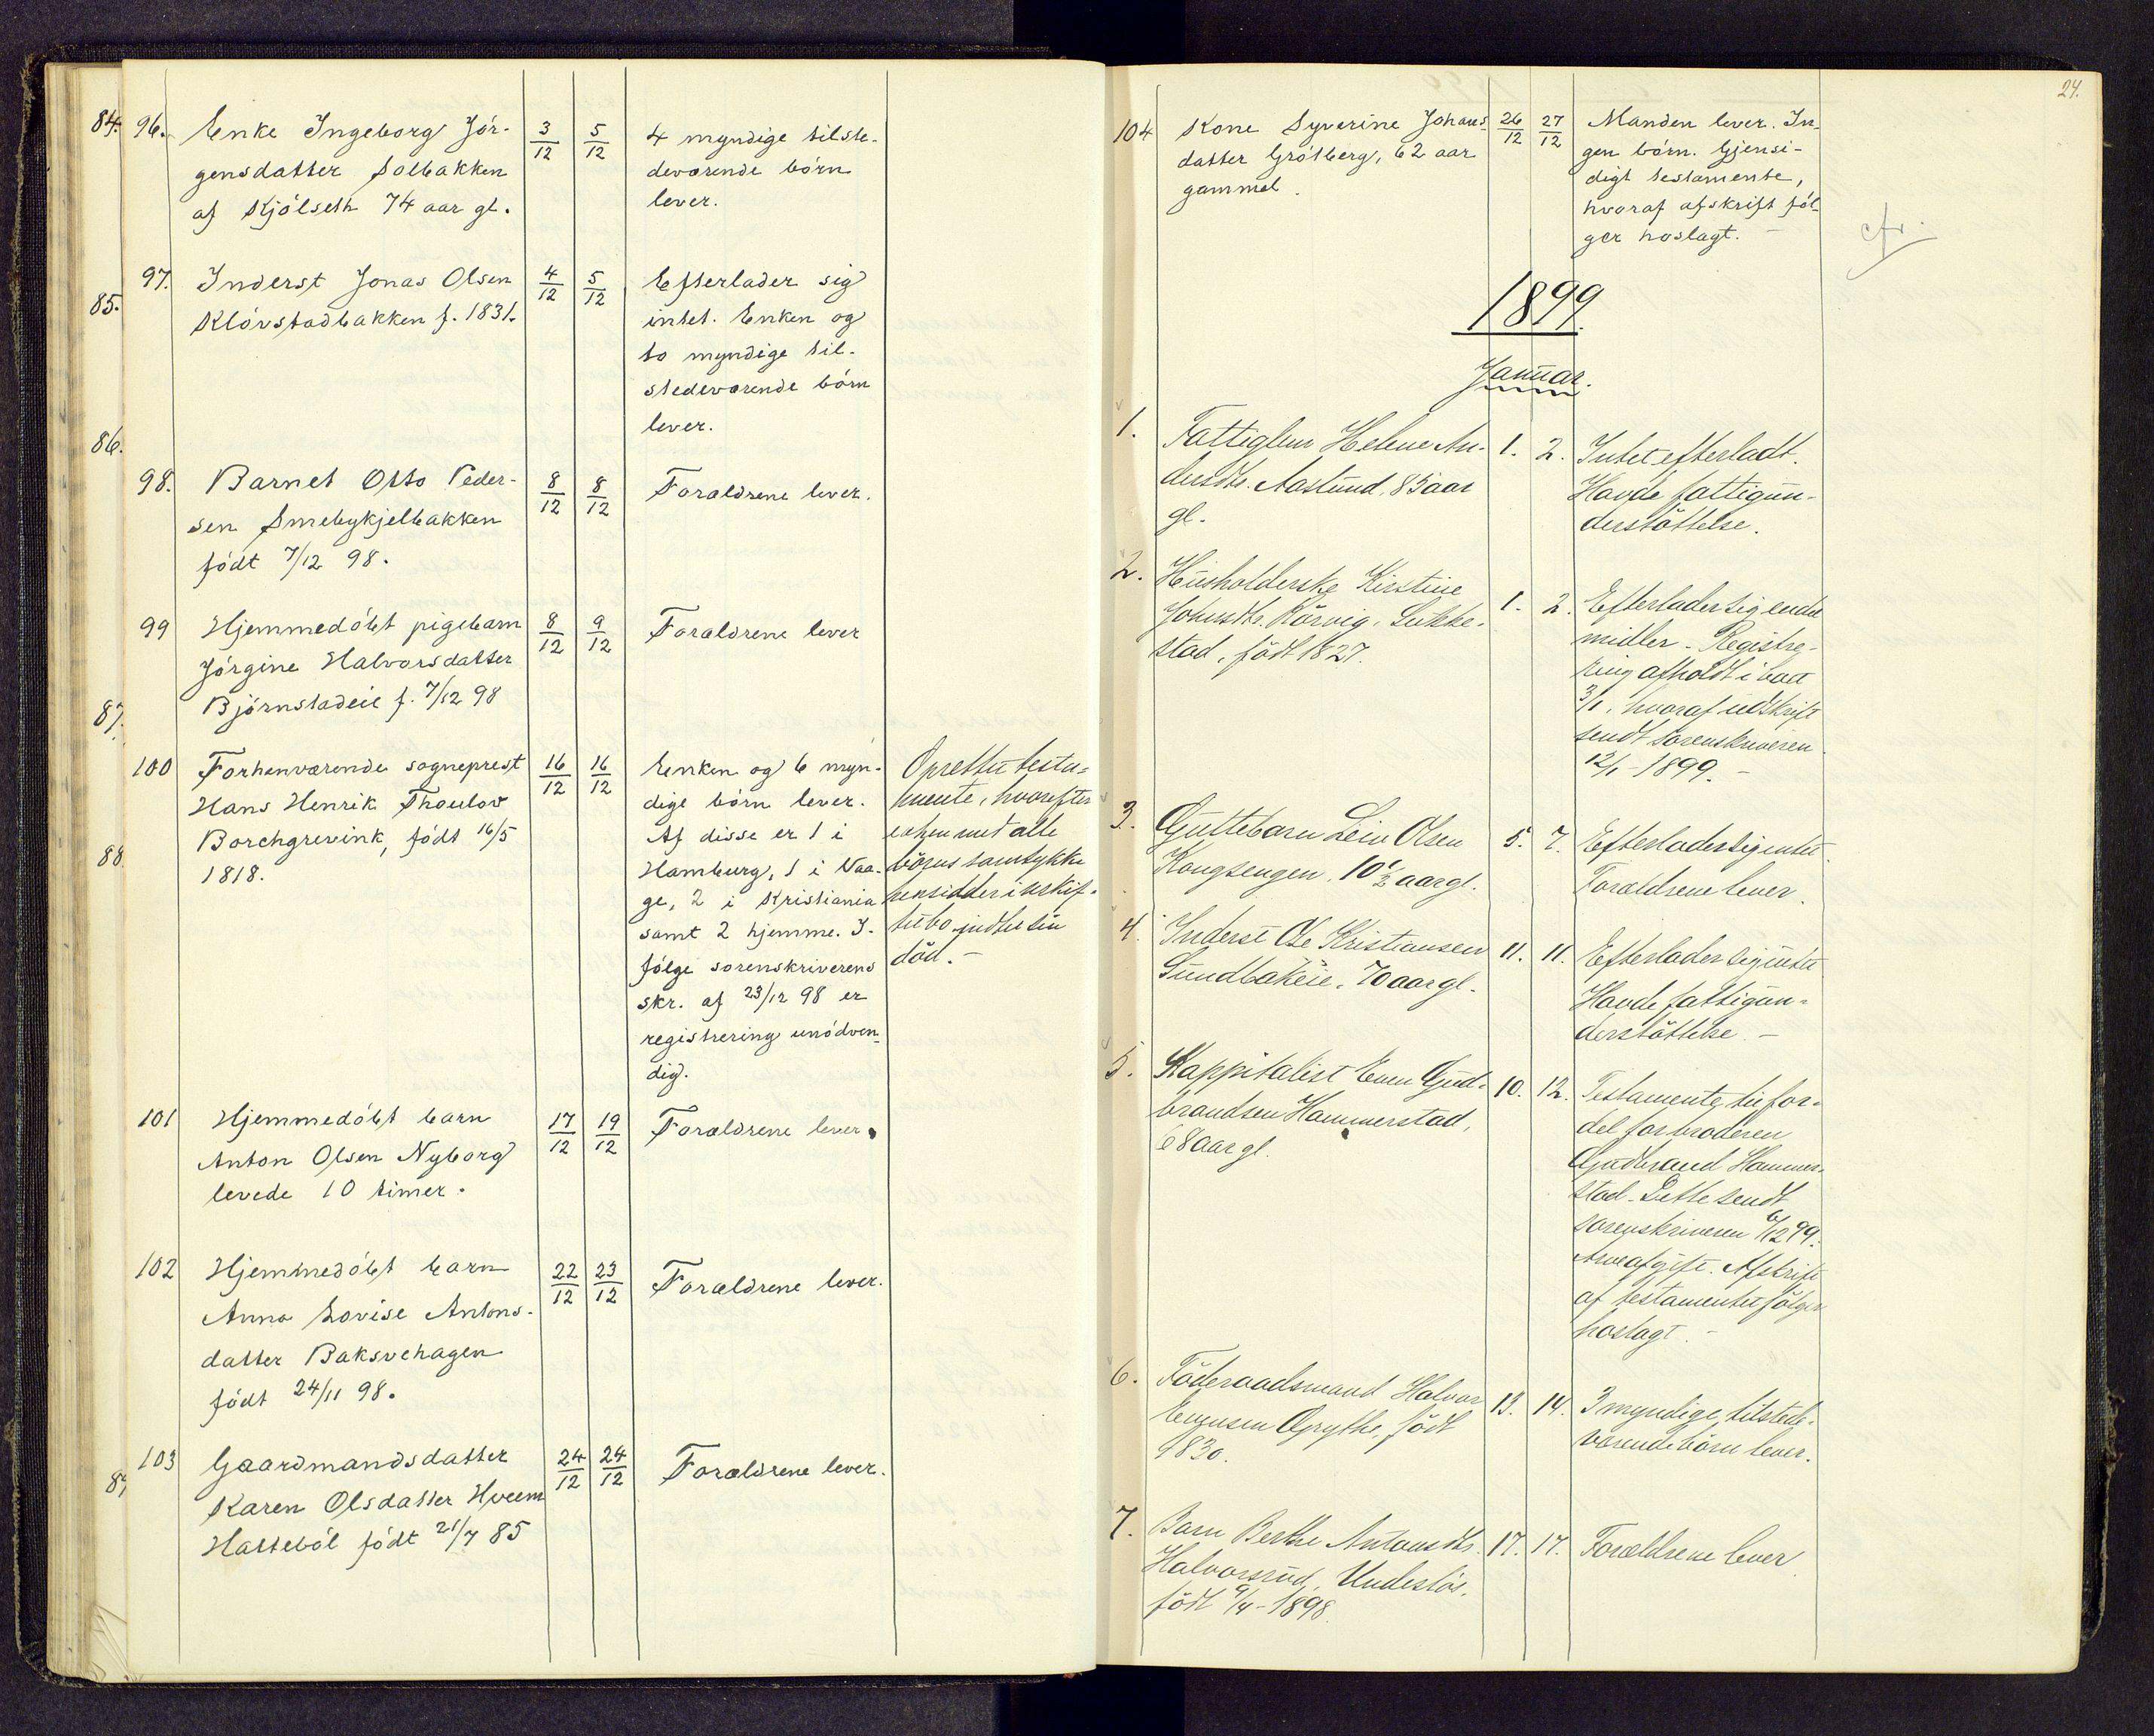 84. 96. Enke Ingeborg Jör-
gensdatter Solbakken
af Kjölseth 74 aar gl.
3/12 5/12
4 myndige tilste-
deværende börn
lever.
85.
97. Inderst Jonas Olsen
Klövstadbakken f. 1831.
4/12 5/12
Efterlader sig
intet. Enken og
to myndige til-
stedeværende börn
lever.
86.
98. Barnet Otto Peder-
sen Smebykjelbakken
födt 7/12 98.
8/12 8/12
Forældrene lever.
99 Hjemmedöbt pigebarn
Jörgine Halvorsdatter
Björnstadeie f. 7/12 98
8/12 9/12
Forældrene lever
87.
100 Forhenværende sogneprest
Hans Henrik Thoulov
Borchgrevink, födt 16/5
1818.
16/12 16/12
Enken og 6 myn-
dige börn lever.
Af disse er 1 i
Hamburg, 1 i Vaa-
ge, 2 i Kristiania
samt 2 hjemme. I-
fölge sorenskriverens
skr. af 23/12 98 er
registrering unödven-
dig.
Oprettet testa-
mente, hvorefter
enken med alle
börns samtykke
hensidder i uskif-
tet bo indtil sin
död. -
88.
101 Hjemmedöbt barn
Anton Olsen Nyborg
levede 10 timer.
17/12 19/12
Forældrene lever.
102 Hjemmedöbt barn
Anna Lovise Antons-
datter Baksvehagen
födt 24/11 98.
22/12 23/12
Forældrene lever.
89
103 Gaardmandsdatter
Karen Olsdatter Hveem
Hatteböl födt 21/7 85
24/12 24/12
Forældrene lever.
24.
104 Kone Syverine Johans
datter Grötberg, 62 aar
gammel.
26/12 27/12
Manden lever. In-
gen börn. Gjensi-
digt testamente,
hvoraf afskrift föl-
ger hoslagt. -
cfr.
1899.
Januar.
1. Fattiglem Helene An-
dersdtr. Aaslund, 83 aar
gl.
1. 2.
Intet efterladt.
Havde fattigun-
derstöttelse.
2. Husholderske Kirstine
Johnsdtr. Rörvig, Lukke-
stad, födt 1827.
1. 2.
Efterlader sig endel
midler - Registre-
ring afholdt i boet
3/1, hvoraf udskrift
sendt sorenskriveren
12/1 - 1899. -
3. Guttebarn Leiv Olsen
Kongsengen, 10 1/2 aar gl.
5. 7.
Efterlader sig intet.
Forældrene lever.
4. Inderst Ole Kristiansen
Sundbakeie, 70 aar gl.
11. 11.
Efterlader sig intet
Havde fattigun-
derstöttelse. -
5. Kappitalist Even Gud-
brandsen Hammerstad,
68 aar gl.
10. 12.
Testamente til for-
del for broderen
Gudbrand Hammer-
stad. Dette sendt
sorenskriveren 6/12 99.
Arveafgift. Afskrift
af testamentet fölger
hoslagt. -
6. Föderaadsmand Halvor
Evensen Grythe, födt
1830.
13. 14.
3 myndige, tilstede-
værende börn lever.
7. Barn Berthe Antonsdtr.
Halvorsrud,
födt 9/4 - 1898.
17. 17.
Forældrene lever.